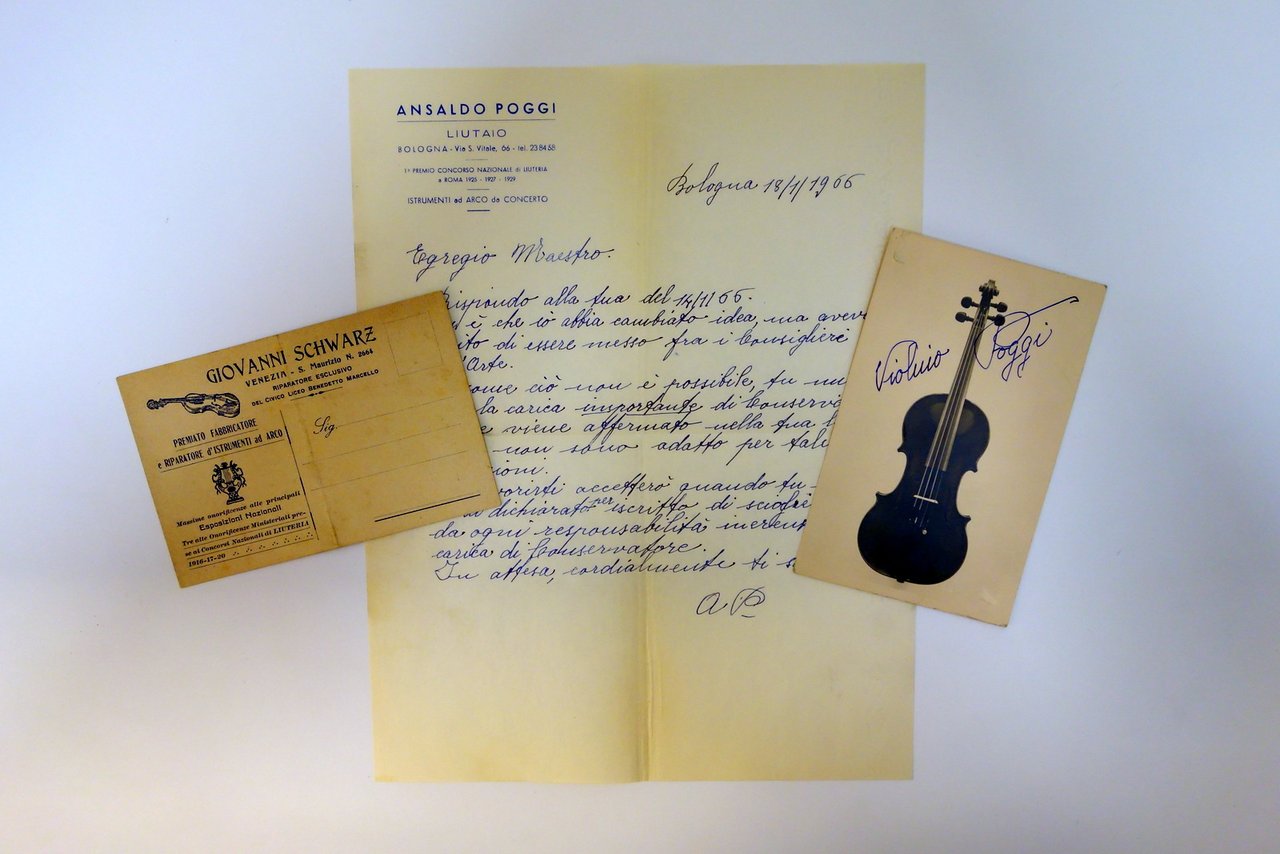 ANSALDO POGGI
LIUTAIO
BOLOGNA - Via S. Vitale, 66 - tel. 238458
1° PREMIO CONCORSO NAZIONALE di LIUTERIA
a ROMA 1925 - 1927 - 1929
ISTRUMENTI ad ARCO da CONCERTO
Bologna 18/1/1966
Egregio Maestro.
rispondo alla tua del 14/1/66.
è che iò abbia cambiato idea, ma avevo
di essere messo fra i Consiglieri
d'Arte.
ciò non è possibile, tu
la carica importante di
viene affermato nella tua
non sono adatto per
accetterò quando tu
dichiarato per iscritto di
da ogni responsabilità
carica di Conservatore.
In attesa, cordialmente ti
A P
GIOVANNI SCHWARZ
VENEZIA - S. Maurizio N. 2664
RIPARATORE ESCLUSIVO
DEL CIVICO LICEO BENEDETTO MARCELLO
PREMIATO FABBRICATORE
e RIPARATORE d'ISTRUMENTI ad ARCO
Massime onorificenze alle principali
Esposizioni Nazionali
Tre alte Onorificenze Ministeriali pre-
se ai Concorsi Nazionali di LIUTERIA
1916-17-20
Sig.
Violino Poggi